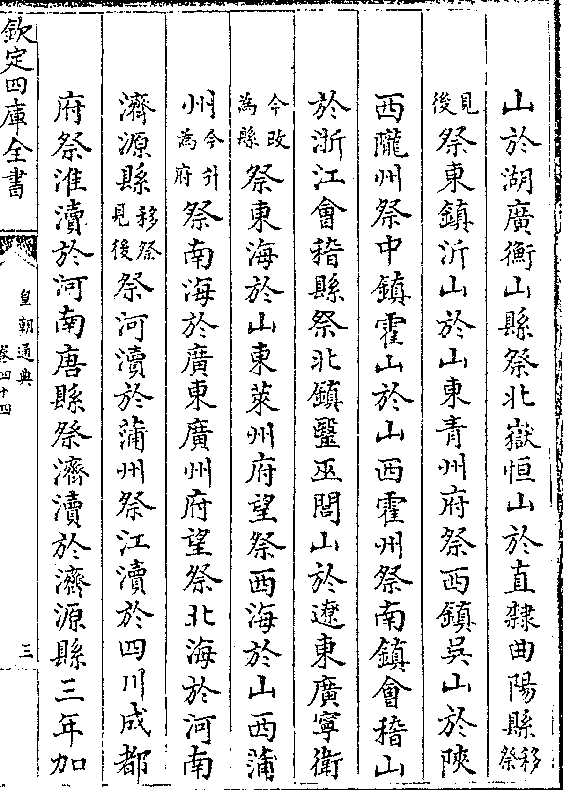 山於湖廣衡山縣祭北嶽恒山於直隸曲陽縣移祭
見後祭東鎮沂山於山東青州府祭西鎮吳山於陝
西隴州祭中鎮霍山於山西霍州祭南鎮會稽山
於浙江會稽縣祭北鎮毉巫閭山於遼東廣寧衛
今改為縣祭東海於山東萊州府望祭西海於山西蒲
州今升為府祭南海於廣東廣州府望祭北海於河南
濟源縣移祭見後祭河瀆於蒲州祭江瀆於四川成都
府祭淮瀆於河南唐縣祭濟瀆於濟源縣三年加
欽定四庫全書
皇朝通典
卷四十四
三